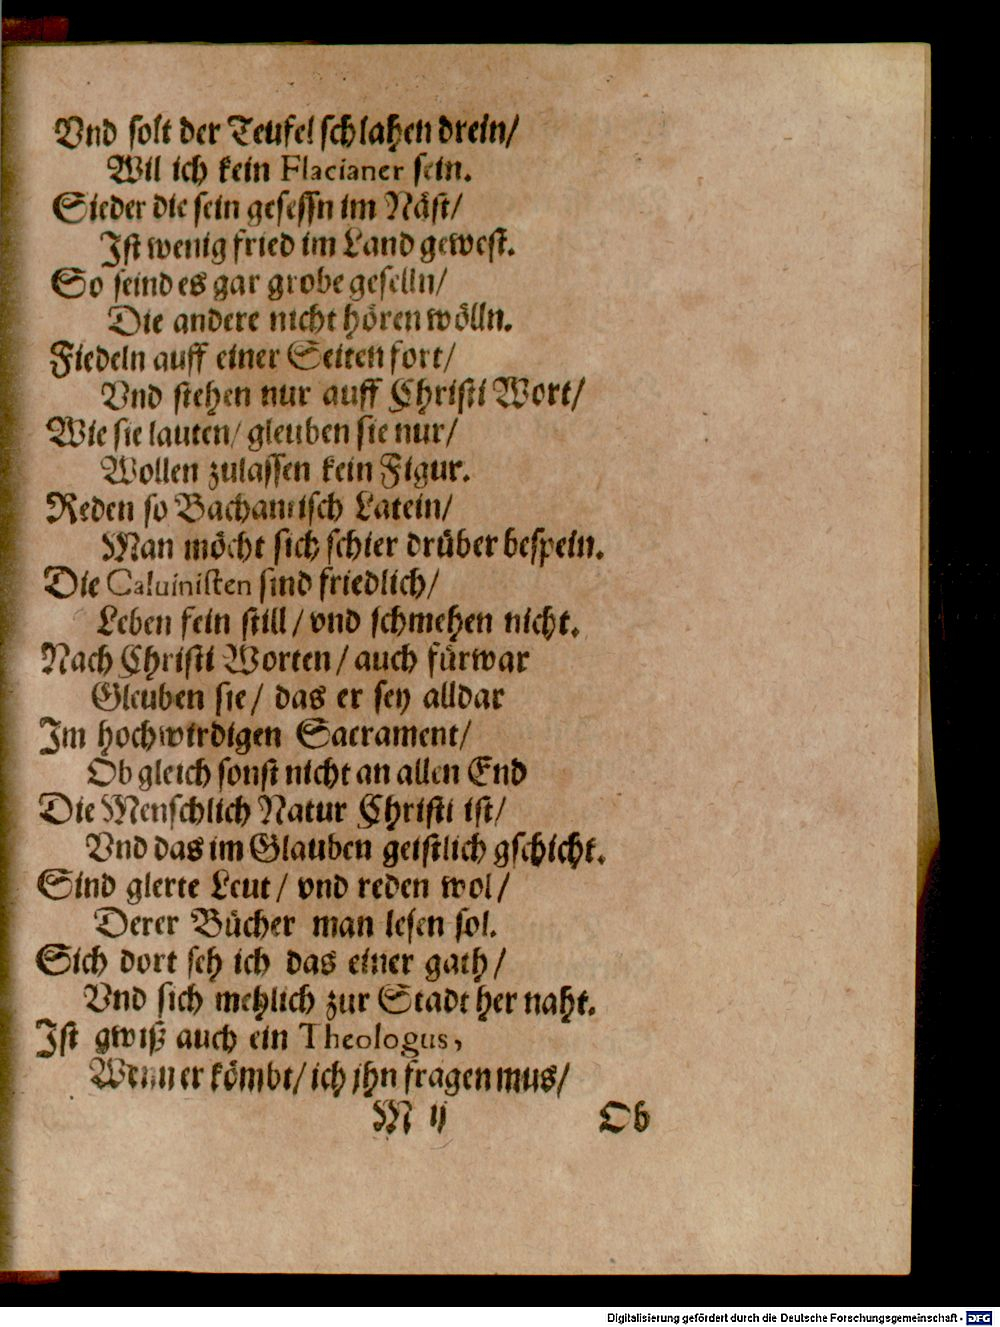 Vnd solt der Teufel schlahen drein/
Wil ich kein Flacianer sein.
Sieder die sein gesessn im Näst/
Ist wenig fried im Land gewest.
So seind es gar grobe geselln/
Die andere nicht hören wölln.
Fiedeln auff einer Seiten fort/
Vnd stehen nur auff Christi Wort/
Wie sie lauten/ gleuben sie nur/
Wollen zulassen kein Figur.
Reden so Bachantisch Latein/
Man möcht sich schier drüber bespein.
Die Caluinisten sind friedlich/
Leben fein still/ vnd schmehen nicht.
Nach Christi Worten/ auch fürwar
Gleuben sie/ das er sey alldar
Im hochwirdigen Sacrament/
Ob gleich sonst nicht an allen End
Die Menschlich Natur Christi ist/
Vnd das im Glauben geistlich gschicht.
Sind glerte Leut/ vnd reden wol/
Derer Bücher man lesen sol.
Sich dort seh ich das einer gath/
Vnd sich mehlich zur Stadt her naht.
Ist gwiß auch ein Theologus,
Wenn er kömbt/ ich jhn fragen mus/
M ij Ob
Digitalisierung gefördert durch die Deutsche Forschungsgemeinschaft - DFG